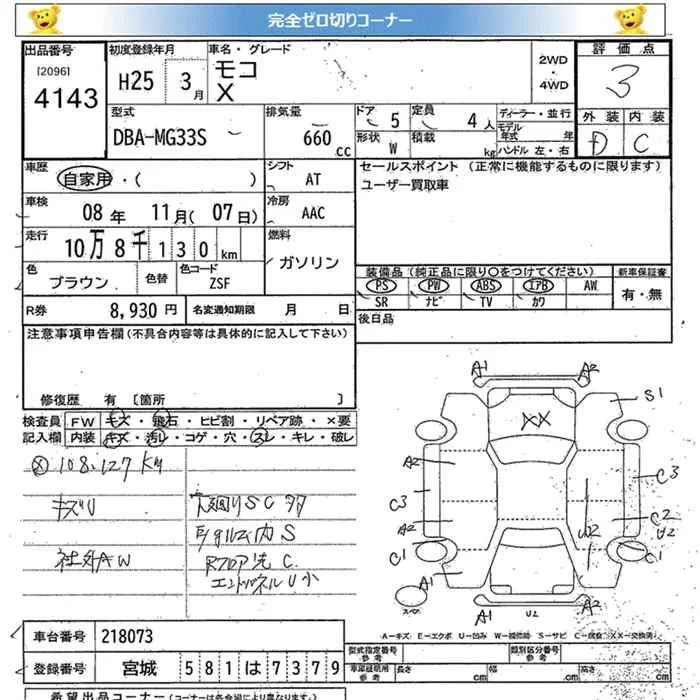 完全ゼロ切りコーナー
出品番号
[2096]
4143
初度登録年月
H25 3月
車名・グレード
モコ
X
2WD
・
4WD
評価点
3
外装 内装
D C
型式
DBA-MG33S
排気量
660 cc
ドア 5
定員 4人
形状 W
積載 kg
ディーラー・並行
モデル年式 年
ハンドル 左・右
車歴
自家用・( )
シフト
AT
セールスポイント (正常に機能するものに限ります)
ユーザー買取車
車検
08年 11月(07日)
冷房
AAC
走行
10万8千130km
燃料
ガソリン
色
ブラウン
色替
色コード
ZSF
装備品(純正品に限り〇をつけてください)
新車保証書
PS PW ABS エアB AW
SR ナビ TV カワ
有・無
R券 8,930円
名変通知期限 月 日
後日品
注意事項申告欄(不具合内容等は具体的に記入して下さい)
修復歴 有 〔箇所 〕
検査員
記入欄
FW キズ・飛石・ヒビ割・リペア跡・×要
内装 キズ・汚レ・コゲ・穴・スレ・キレ・破レ
108.127 KM
キズU
社外AW
下廻りSC多
内S
C.
エンドパネルU小
A1 A2
S1
XX
A2
C3
C3
A2
C2
U2
U2
C1
C1
A1
A2
U2
スペア
A-キズ E-エクボ U-凹み W-補修跡 S-サビ C-腐食 XX-交換済
車台番号 218073
型式指定番号
参考
類別区分番号
参考
登録番号 宮城 581は7379
車庫証明用
参考
長さ cm 幅 cm 高さ cm
希望出品コーナー